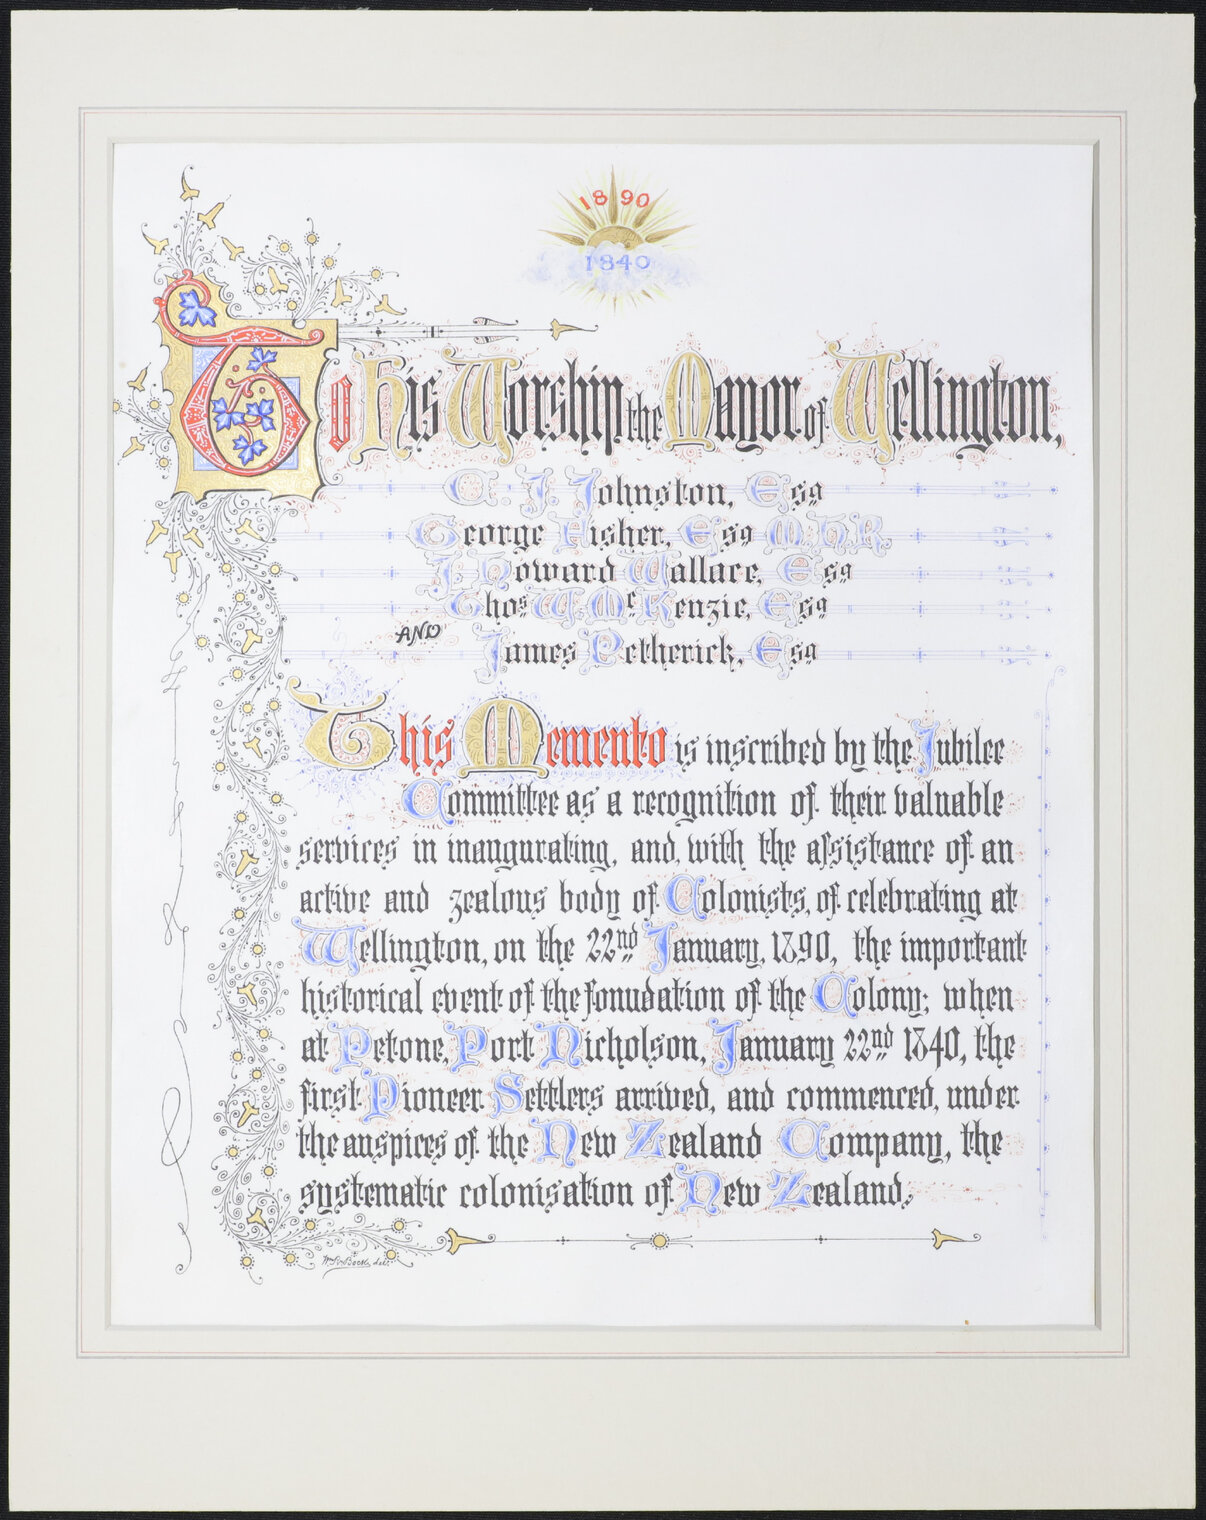 1890
1840
To His Worship, the Mayor of Wellington,
C. J. Johnston, Esq
George Fisher, Esq M.H.R.
J. Howard Wallace, Esq
Thos W. Mc Kenzie, Esq
AND
James Petherick, Esq
This Memento is inscribed by the Jubilee
Committee as a recognition of their valuable
services in inaugurating, and, with the assistance of an
active and zealous body of Colonists, of celebrating at
Wellington, on the 22nd January, 1890, the important
historical event of the foundation of the Colony; when
at Petone, Port Nicholson, January 22nd 1840, the
first Pioneer Settlers arrived, and commenced, under
the auspices of the New Zealand Company, the
systematic colonisation of New Zealand.
W. R. Bock, del.